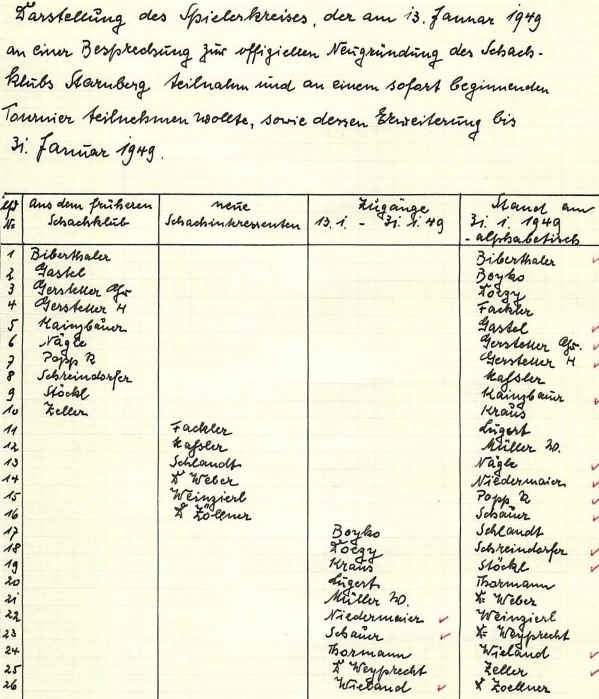 Darstellung des Spielerkreises, der am 13. Januar 1949
an einer Besprechung zur offiziellen Neugründung des Schach-
klubs Starnberg teilnahm und an einem sofort beginnenden
Tournier teilnehmen wollte, sowie dessen Erweiterung bis
31. Januar 1949.
lfd No. Aus dem früheren Schachklub neue Schachinteressenten Zugänge 13.1. - 31.1.49 Stand am 31.1.1949 - alphabetisch
1 Biberthaler Biberthaler
2 Gastel Boyko
3 Gerstetter Gg. Doezy
4 Gerstetter H Fackler
5 Kainzbauer Gastel
6 Nägle Gerstetter Gg.
7 Popp R Gerstetter H
8 Schreindorfer Kassler
9 Stöckl Kainzbauer
10 Zeller Kraus
11 Fackler Lugert
12 Kassler Müller W.
13 Schlandt Nägle
14 D Weber Niedermaier
15 Weinzierl Popp R
16 D Zöllner Schauer
17 Boyko Schlandt
18 Doezy Schreindorfer
19 Kraus Stöckl
20 Lugert Thormann
21 Müller W. Dr. Weber
22 Niedermaier Weinzierl
23 Schauer Dr. Weyprecht
24 Thormann Wieland
25 D Weyprecht Zeller
26 Wieland D Zoellner